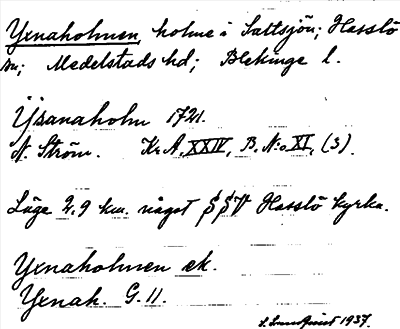 Yxnaholmen, holme i Saltsjön; Hasslö
sn; Medelstads hd; Blekinge l.
Ÿxanaholm 1721.
N. Ström. Kr. A. XXIV, B. N:o XI, (3).
Läge 2,9 km. något S S V Hasslö kyrka.
Yxnaholmen ek.
Yxnah. G. 11.
S. Sundquist 1937.